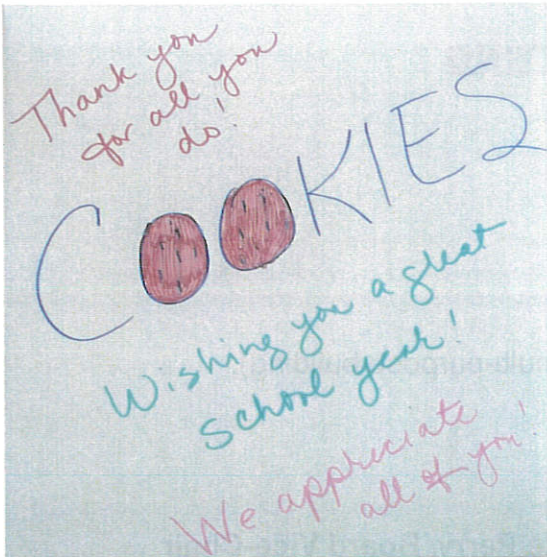 Thank you
for all you
do!
COOKIES
Wishing you a great
school year!
We appreciate
all of you!